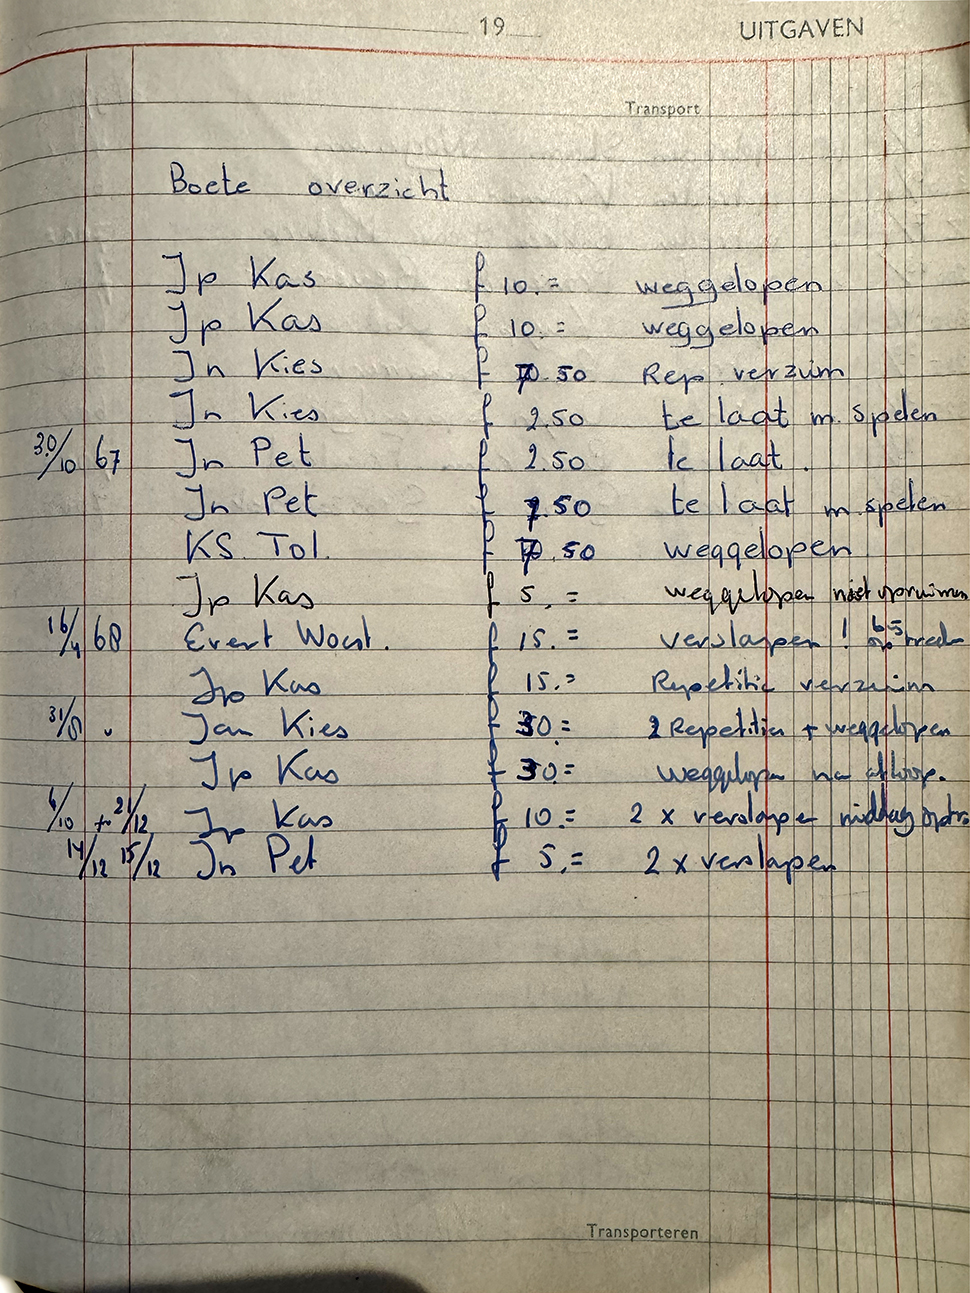 19 UITGAVEN
Transport
Boete overzicht
Jp Kas f 10.= weggelopen
Jp Kas f 10.= weggelopen
Jn Kies f 7.50 Rep. verzuim
Jn Kies f 2.50 te laat m. spelen
30/10 67 Jn Pet f 2.50 te laat.
Jn Pet f 7.50 te laat m. spelen
KS. Tol. f 7.50 weggelopen
Jp Kas f 5.= weggelopen niet opruimen
16/4 68 Evert Woest. f 15.= verslapen!
Jp Kas f 15.= Repetitie verzuim
31/8 " Jan Kies f 30= 2 Repetities + weggelopen
Jp Kas f 30= weggelopen na afloop.
6/10 + 21/12 Jp Kas f 10.= 2 x verslapen middag
14/12 15/12 Jn Pet f 5.= 2 x verslapen
Transporteren